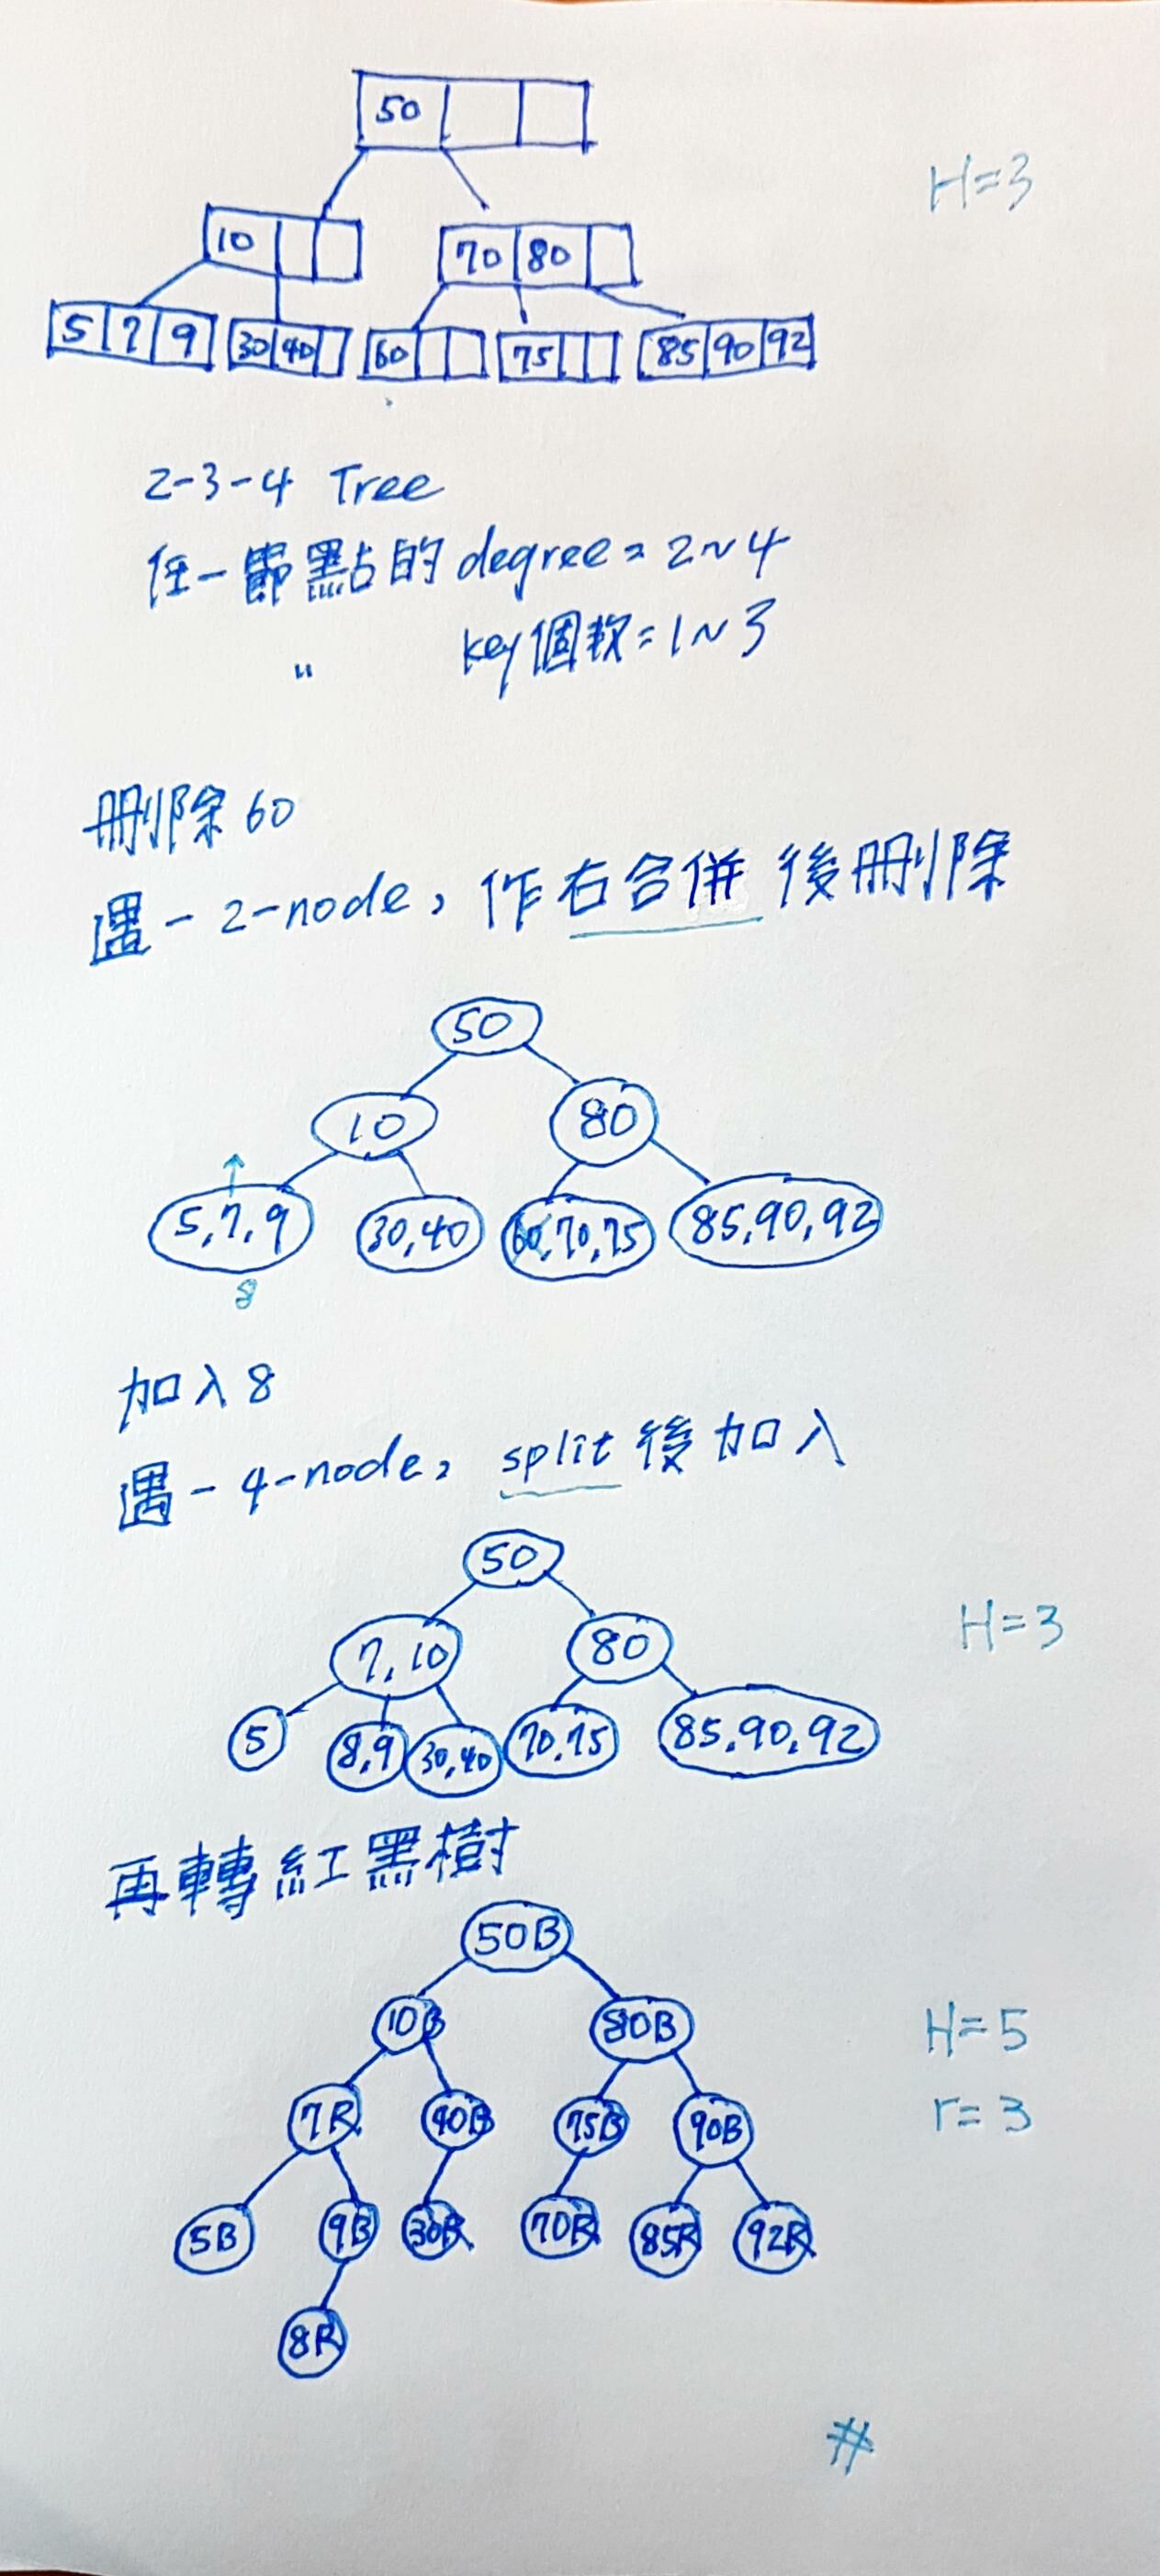 50
H=3
10
70 80
5 7 9 30 40 60 75 85 90 92
2-3-4 Tree
任一節點的degree=2~4
〃 key個數=1~3
刪除60
遇一2-node, 作右合併後刪除
50
10 80
5,7,9 30,40 60,70,75 85,90,92
8
加入8
遇一4-node, split後加入
50
7,10 80
H=3
5 8,9 30,40 70,75 85,90,92
再轉紅黑樹
50B
10B 80B
H=5
7R 40B 75B 90B
r=3
5B 9B 30R 70R 85R 92R
8R
#